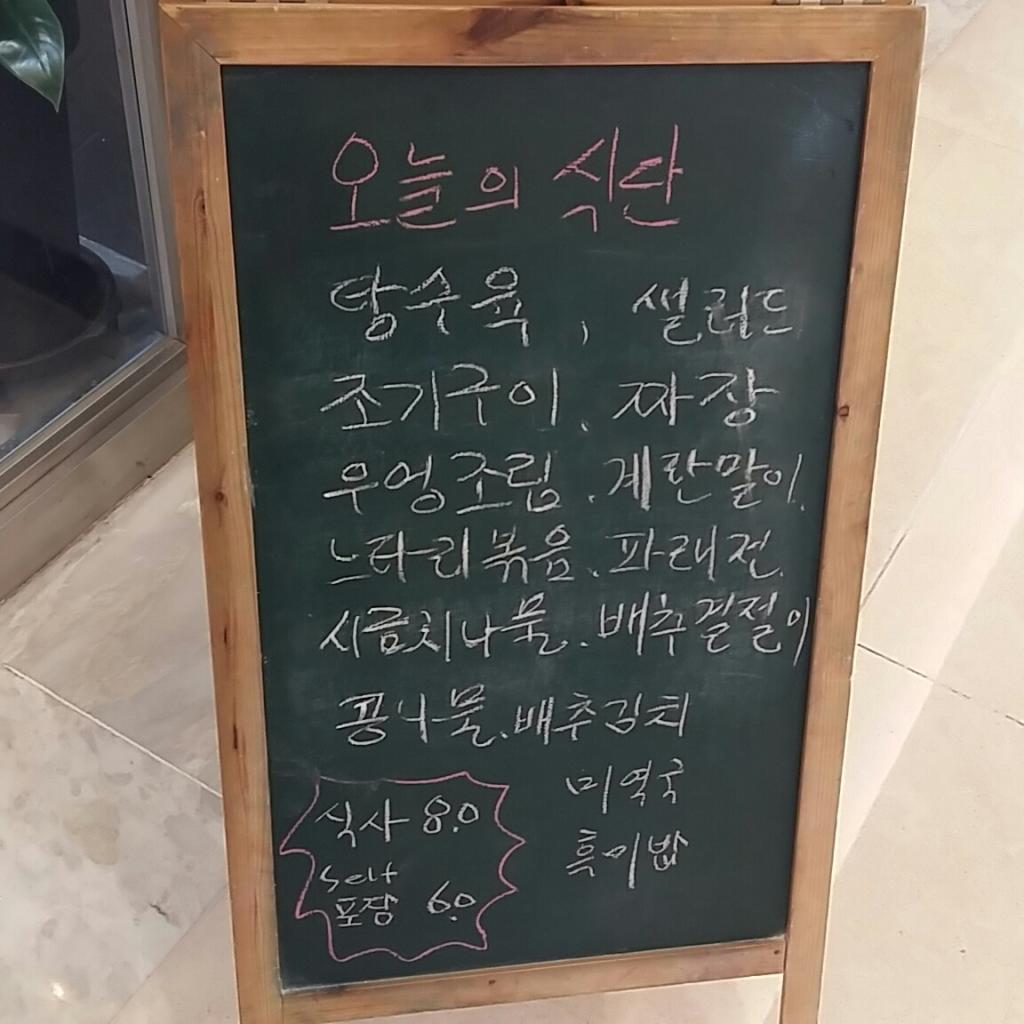 오늘의 식단
탕수육, 샐러드
조기구이. 짜장
우엉조림. 계란말이.
느타리볶음. 파래전.
시금치나물. 배추겉절이
콩나물. 배추김치
미역국
흑미밥
식사 8.0
Self
포장 6.0